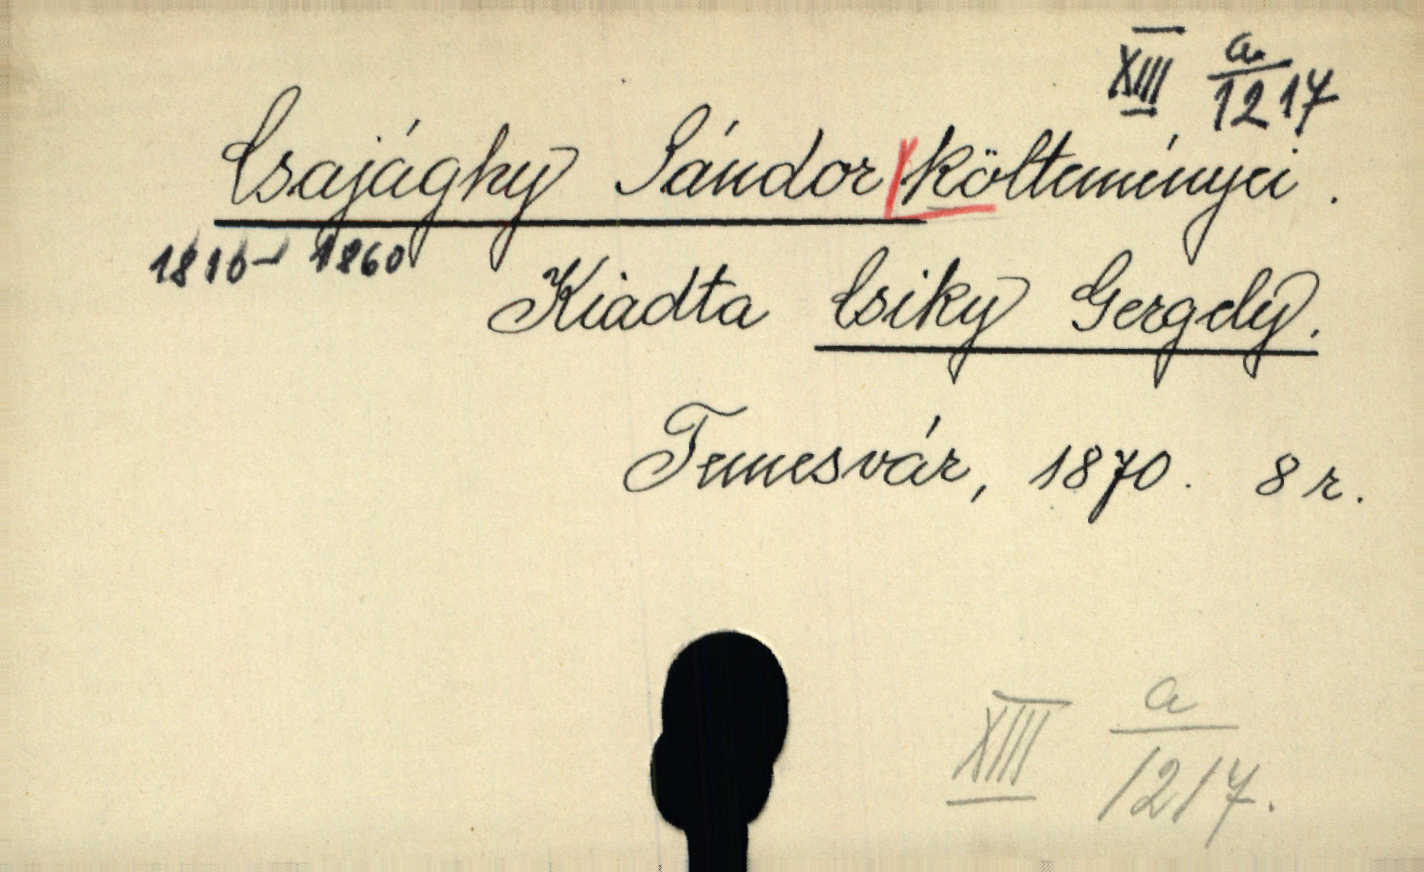 XIII a/1217
Csajághy Sándor költeményei.
1810-1860
Kiadta Csiky Gergely.
Temesvár, 1870. 8 r.
XIII a/1217.